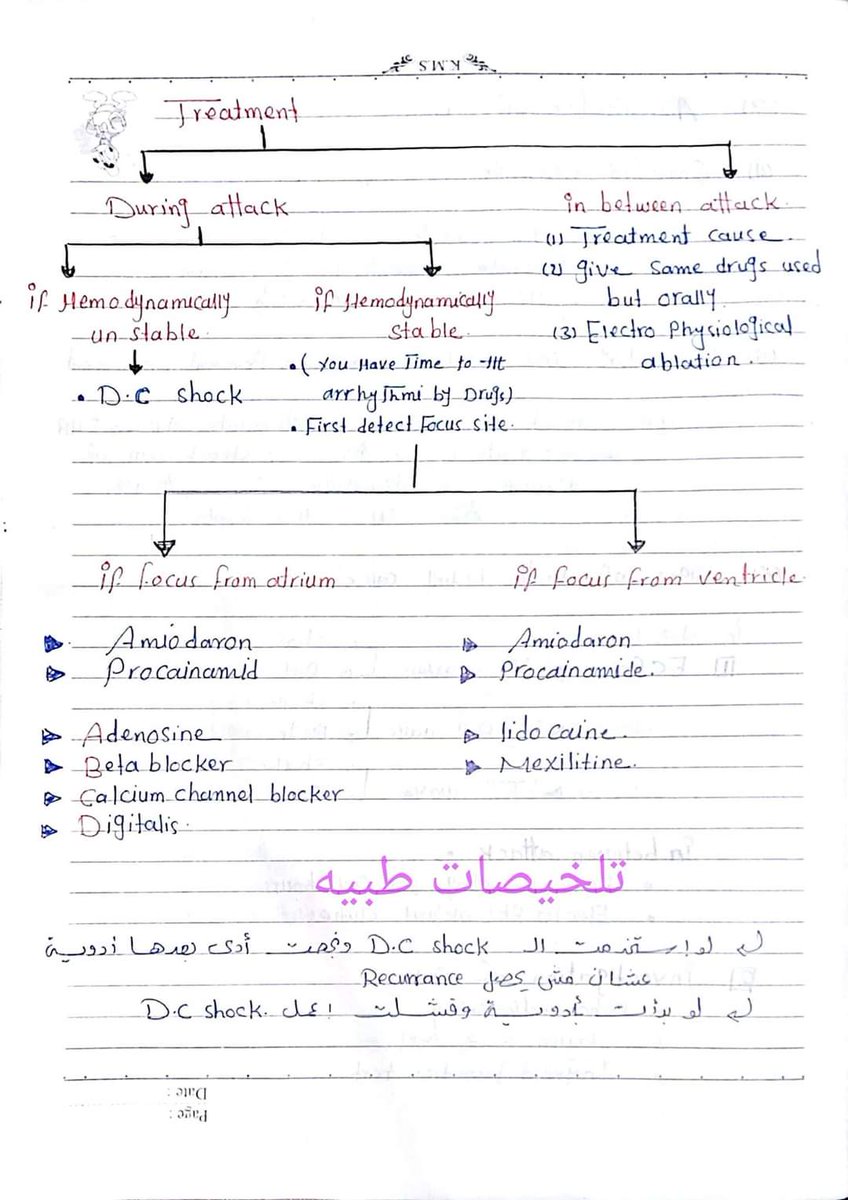 K.M.S
Treatment
During attack
if Hemodynamically
un stable.
• D.C shock
if Hemodynamically
stable.
• ( You Have Time to ttt
arrhythmi by Drugs)
• First detect Focus site.
in between attack.
(1) Treatment cause.
(2) give same drugs used
but orally
(3) Electro Physiological
ablation.
if focus from atrium
Amiodaron
Procainamid
Adenosine
Beta blocker
Calcium channel blocker
Digitalis.
if focus from ventricle.
Amiodaron
Procainamide.
lidocaine.
Mexilitine.
تلخيصات طبيه
لو إستخدمت الـ D.C shock ونجحت أدى بعدها أدوية
عشان مش يحصل Recurrance
لو بدأت بأدوية وفشلت اعمل D.C shock.
Date :
Page :